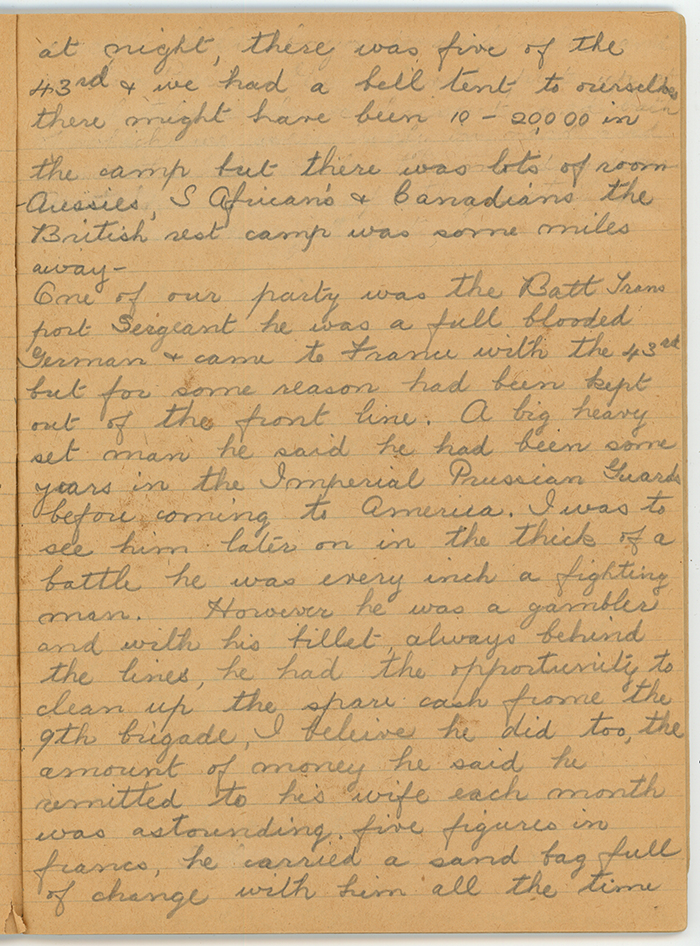 at night, there was five of the
43rd & we had a bell tent to ourselves
there might have been 10 - 20,000 in
the camp but there was lots of room
Aussies, S African's & Canadians the
British rest camp was some miles
away-
One of our party was the Batt Trans
port Sergeant he was a full blooded
German & came to France with the 43rd
but for some reason had been kept
out of the front line. A big heavy
set man he said he had been some
years in the Imperial Prussian Guards
before coming to America. I was to
see him later on in the thick of a
battle he was every inch a fighting
man. However he was a gambler
and with his billet always behind
the lines, he had the opportunity to
clean up the spare cash frome the
9th brigade, I beleive he did too, the
amount of money he said he
remitted to his wife each month
was astounding. five figures in
francs, he carried a sand bag full
of change with him all the time